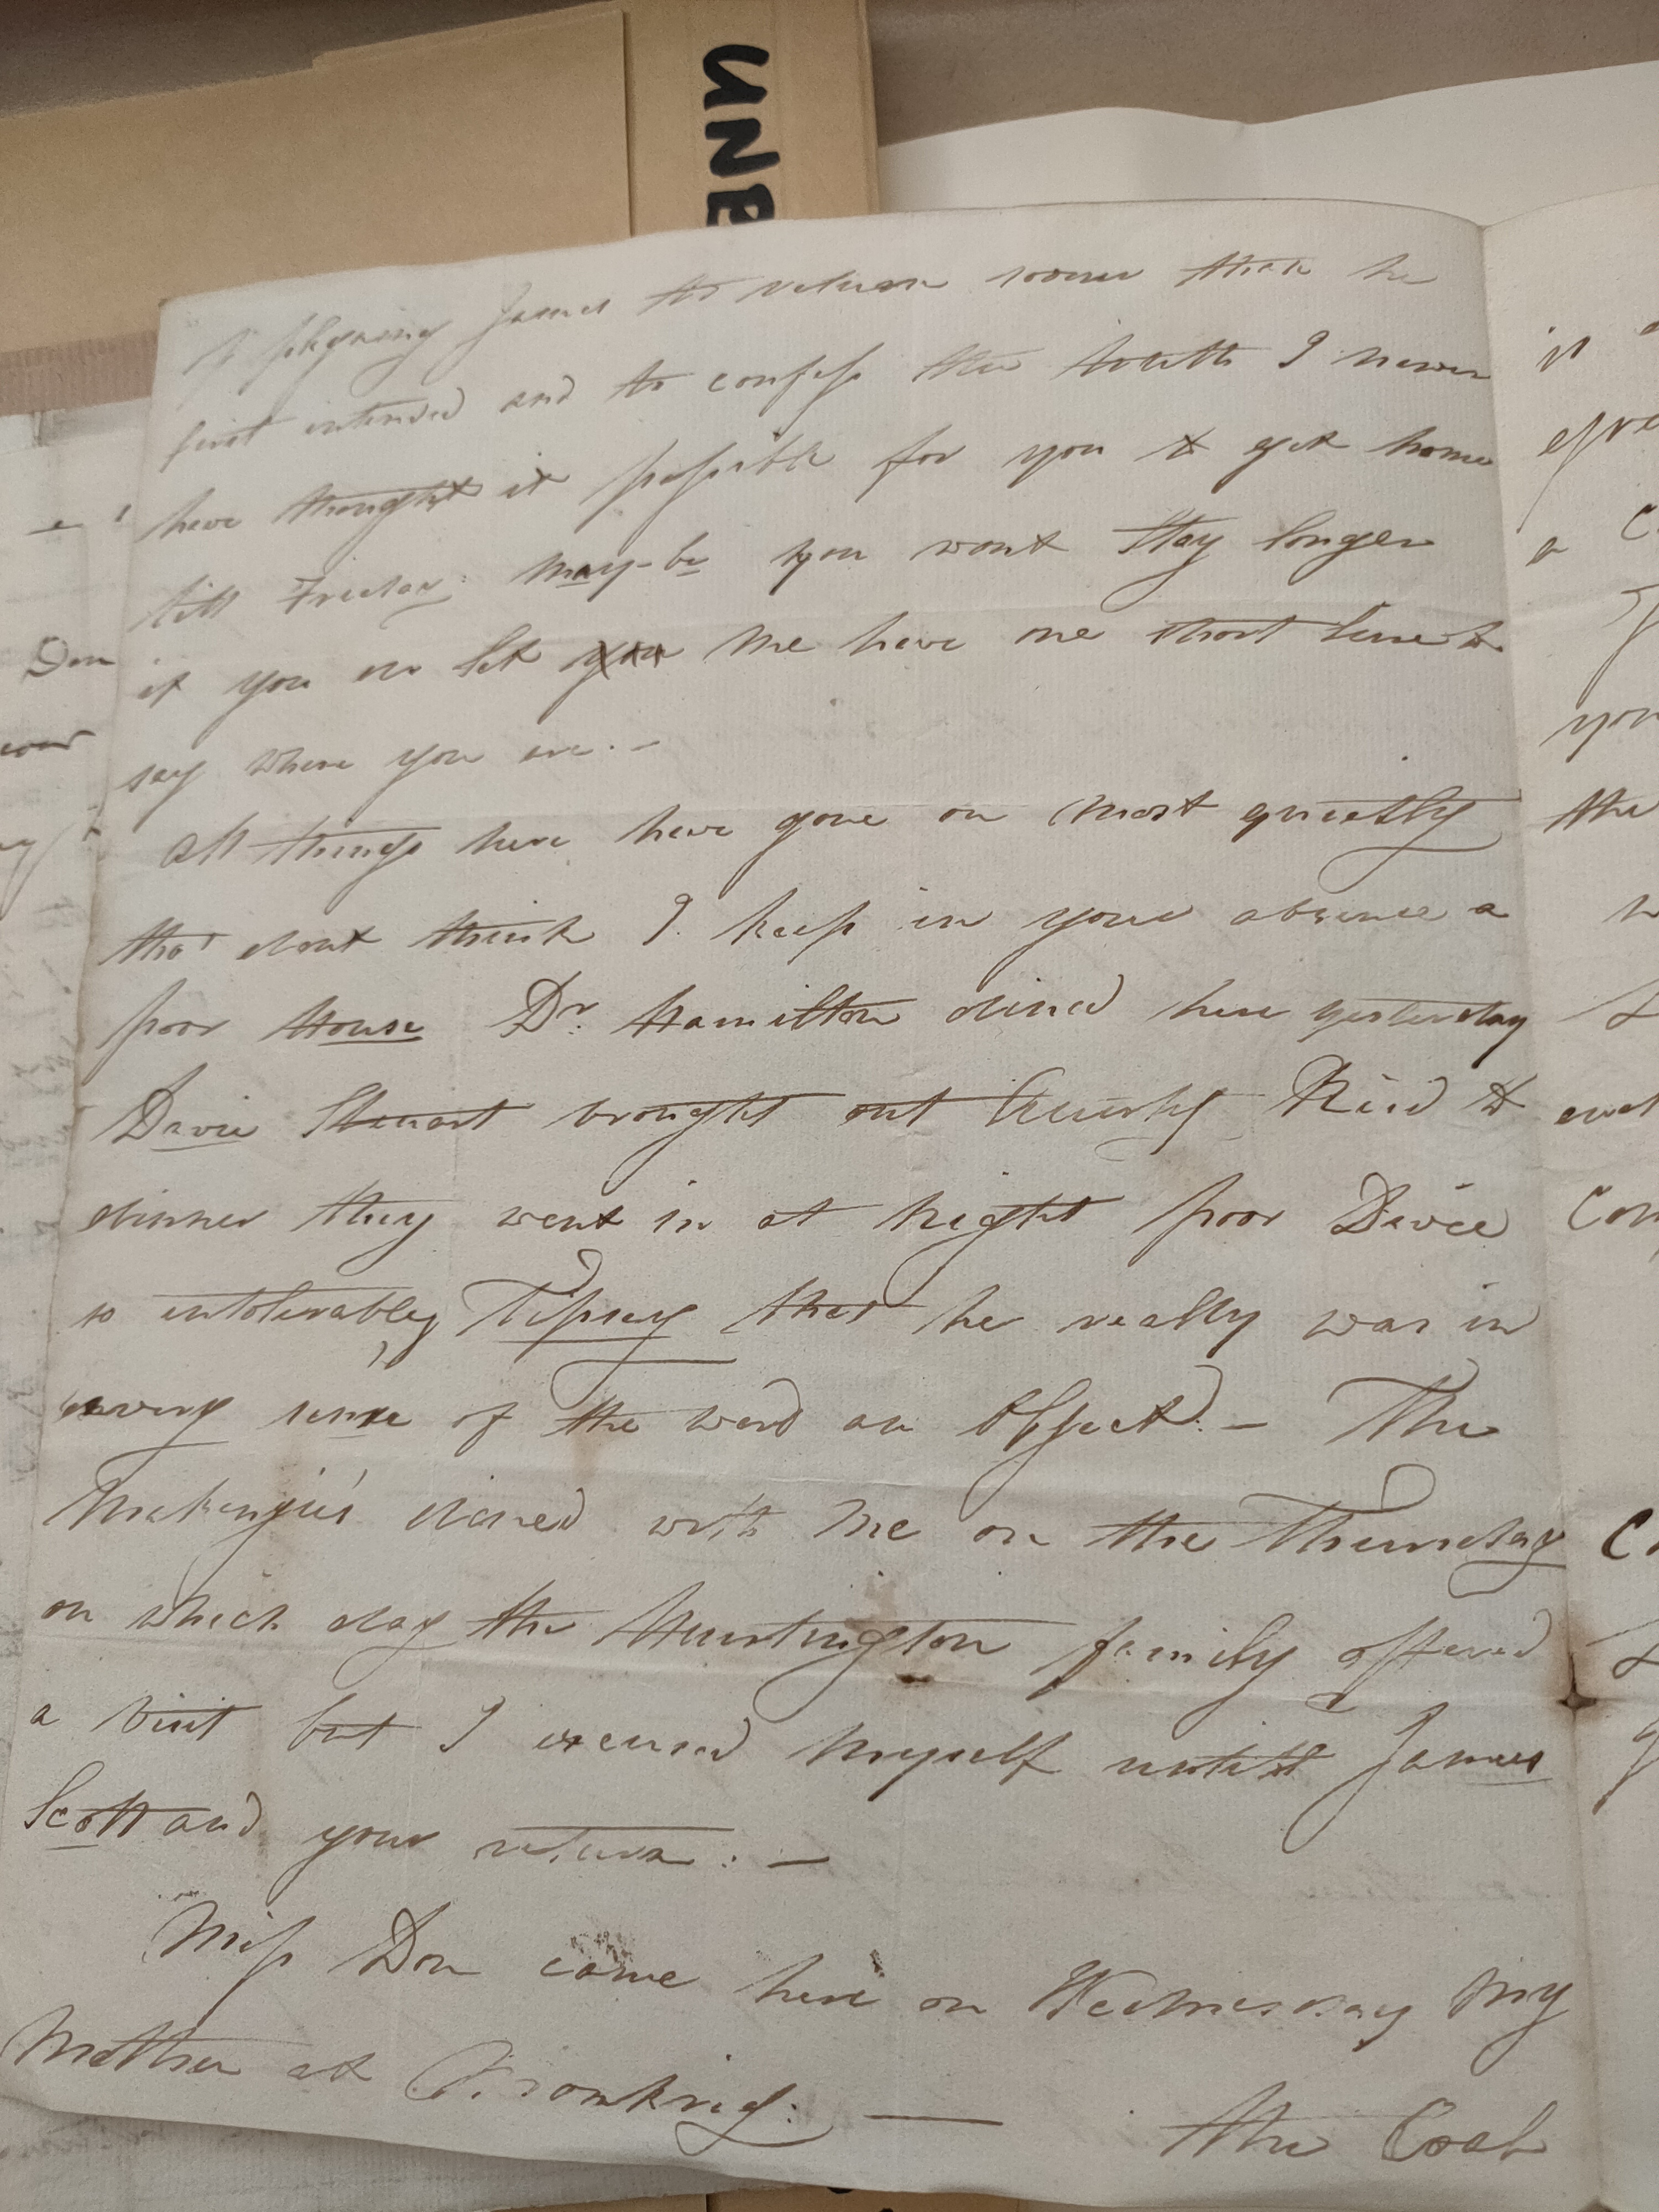 UNE
of pleguing James to return sooner than he
first intended and to confess the truth I never
have thought it possible for you to get home
till Friday: may-be you wont stay longer
if you do let you me have one short line to
say where you are. –
all things here have gone on most quietly
tho' dont think I keep in your absence a
poor House Dr: Hamilton dined here yesterday
Davie Steuart brought out Reid to
dinner they went in at night poor Davie
so intolerably Tipsey that he really was in
every sense of the word an Object: – The
Makenzie's dined with me on the Thursday
on which day the Huntington family offered
a visit but I excused myself untill James
Scott and your return: –
Miss Don came here on Wednesday my
Mother at : — the Coal
Don
is
a
you
the
and